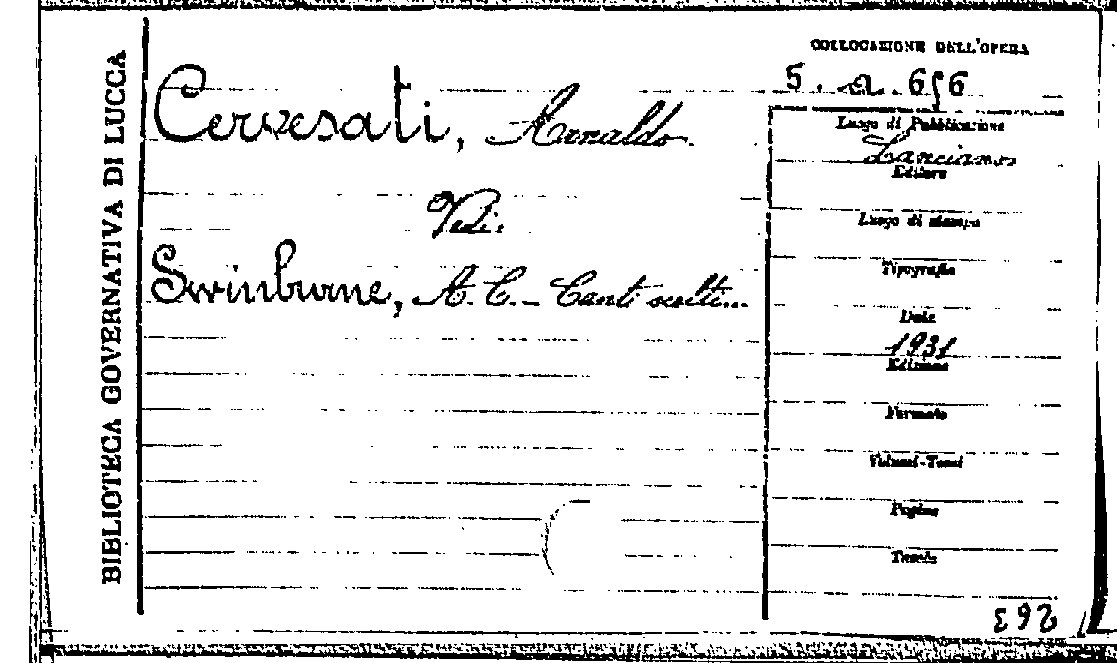 BIBLIOTECA GOVERNATIVA DI LUCCA
Cervesati, Arnaldo.
Vedi:
Swinburne, A. C. - Canti scelti...
COLLOCAZIONE DELL'OPERA
5. a. 656
Luogo di Pubblicazione
Lanciano
Editore
Luogo di stampa
Tipografia
Data
1931
Edizione
Formato
Volumi-Tomi
Pagine
Tavole
263